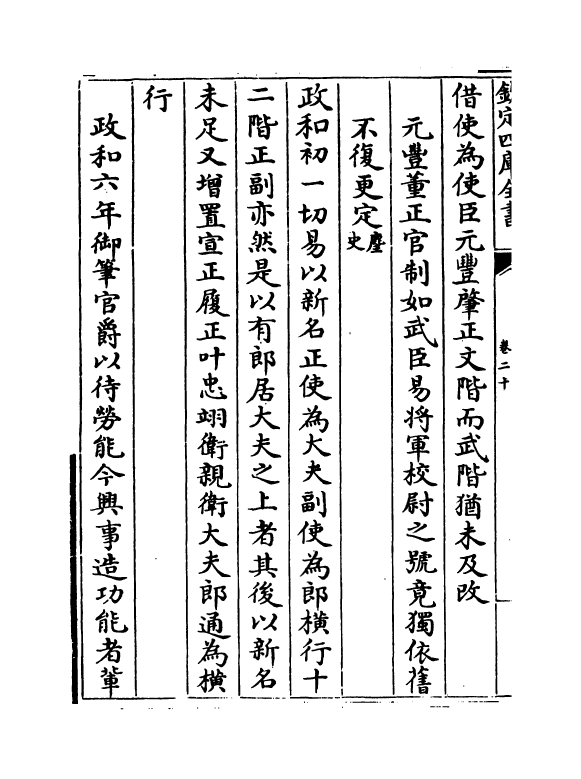 欽定四庫全書
卷二十
借使為使臣元豐肇正文階而武階猶未及改
元豐董正官制如武臣易將軍校尉之號竟獨依舊
不復更定麈史
政和初一切易以新名正使為大夫副使為郎橫行十
二階正副亦然是以有郎居大夫之上者其後以新名
未足又增置宣正履正叶忠翊衛親衛大夫郎通為橫
行
政和六年御筆官爵以待勞能今興事造功能者輩